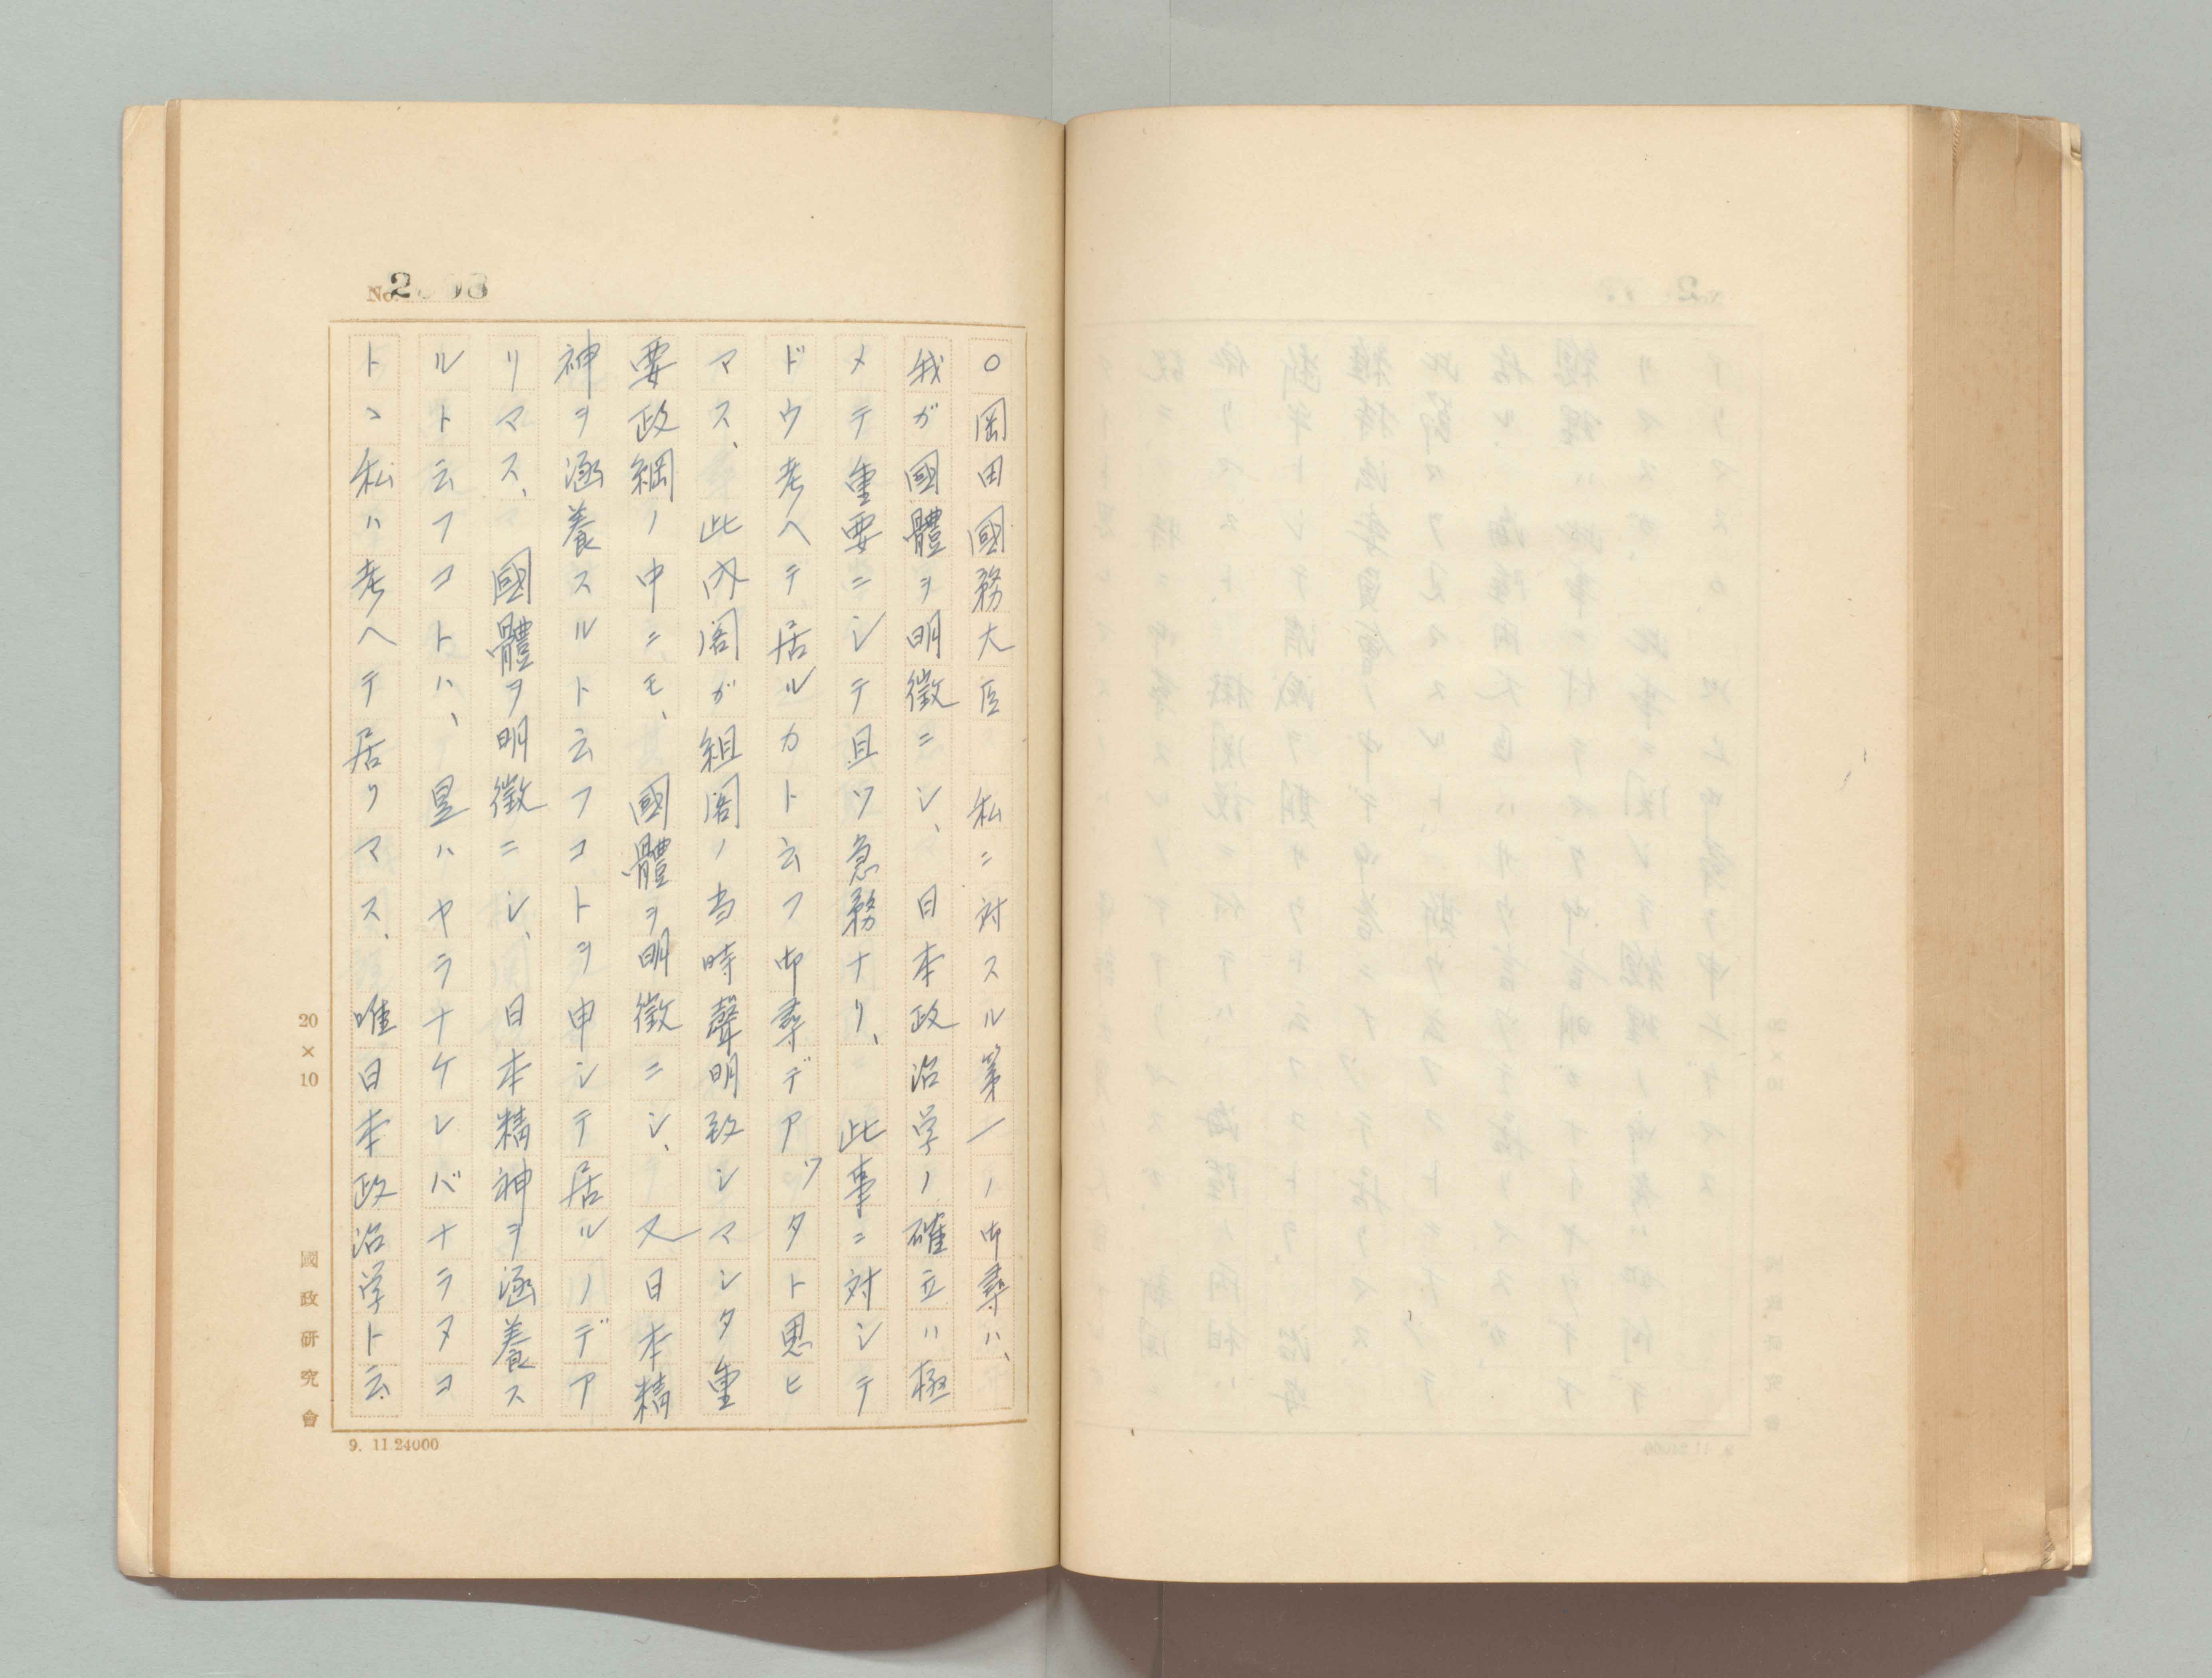 ○岡田國務大臣　私ニ対スル第一ノ御尋ハ、
我ガ國體ヲ明徴ニシ、日本政治学ノ確立ハ極
メテ重要ニシテ且ツ急務ナリ、此事ニ対シテ
ドウ考ヘテ居ルカト云フ御尋デアツタト思ヒ
マス、此内閣ガ組閣ノ当時聲明致シマシタ重
要政綱ノ中ニモ、國體ヲ明徴ニシ、又日本精
神ヲ涵養スルト云フコトヲ申シテ居ルノデア
リマス、國體ヲ明徴ニシ、日本精神ヲ涵養ス
ルト云フコトハ、是ハヤラナケレバナラヌコ
トヽ私ハ考ヘテ居リマス、唯日本政治学ト云
20×10
國政研究會
9. 11 24000